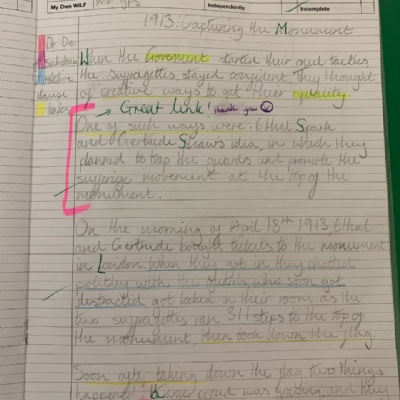 My Own WILF
Independently
Incomplete
1913: Capturing the Monument
When the Goverment started their cruel tactics
the suffragettes stayed confident. They thought
of creative ways to get their equality.
Great link! thank you
One of such ways were: Ethel Spark
and Gertrude Shaw's idea, in which they
planned to trap the guards and promote the
suffrage movement at the top of the
monument.
On the morning of April 18th 1913, Ethel
and Gertrude bought tickets to the monument
in London. When they got in they chatted
politley with the guards, who soon got
distracted got locked in their room as the
two suffragettes ran 311 steps to the top of
the monument, then took down the flag.
Soon after taking down the flag two things
happened: a large crowd was growing and they